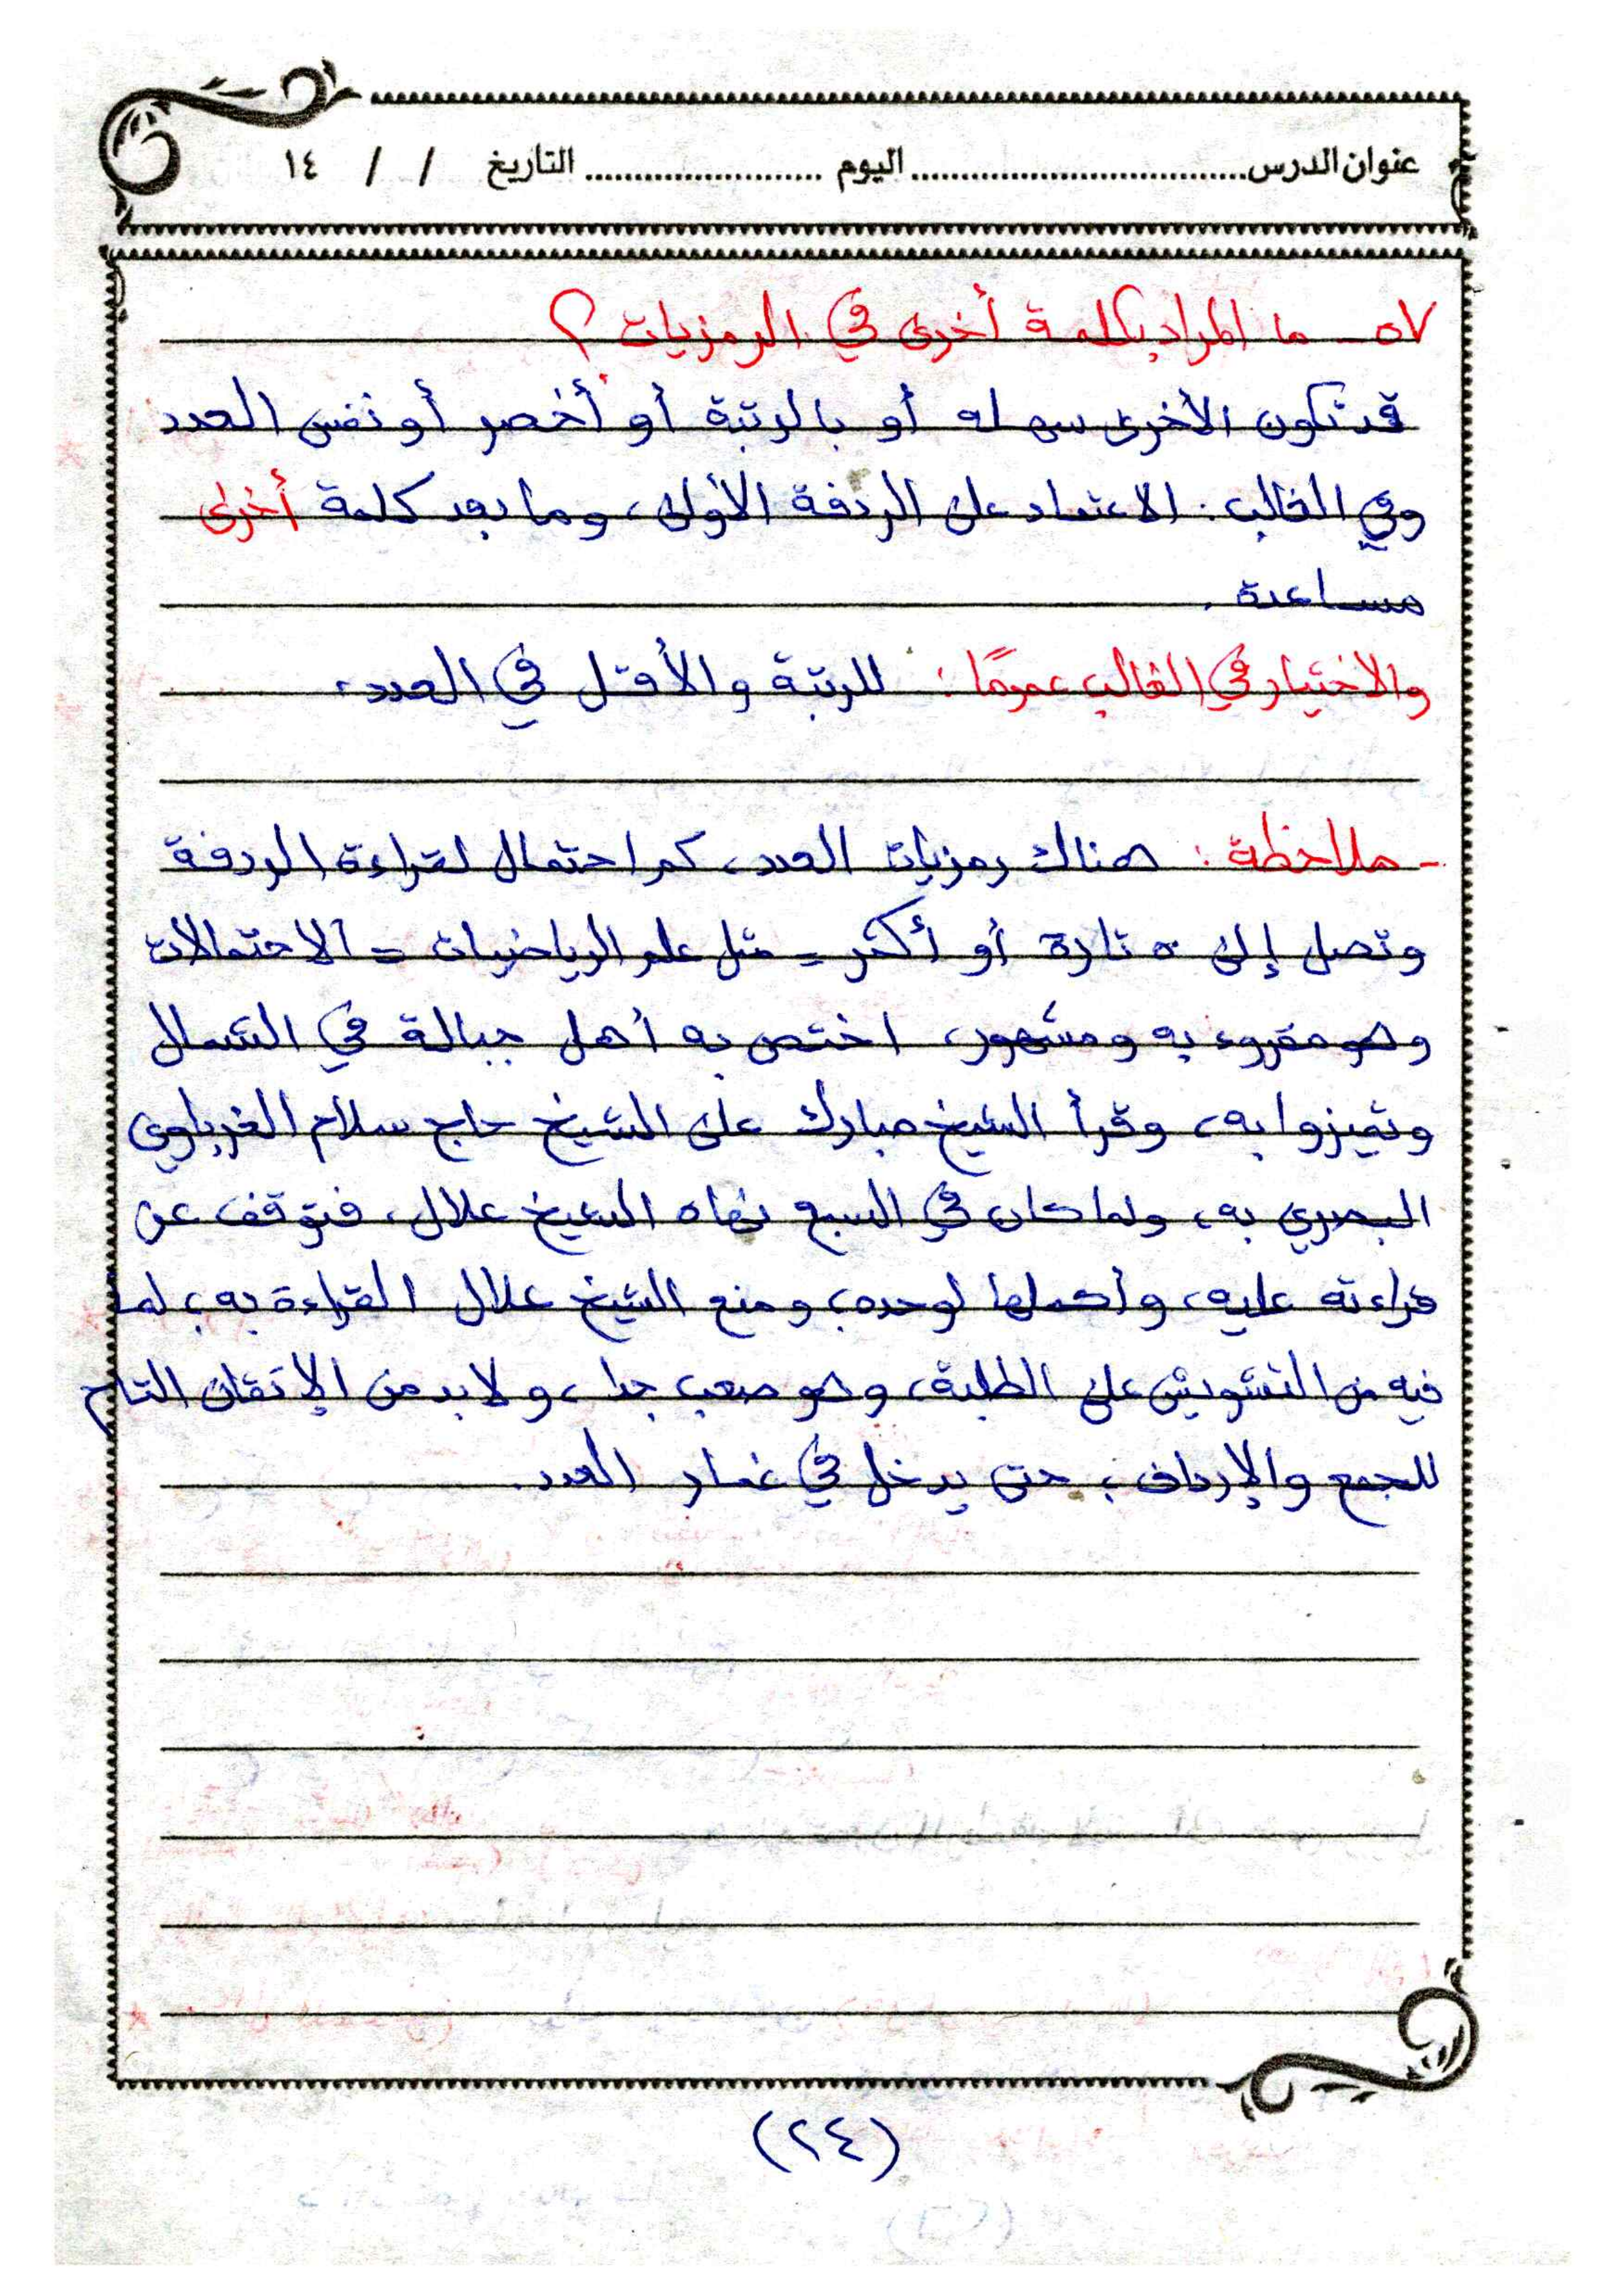 عنوان الدرس.................................اليوم ........................ التاريخ / / ١٤
٥٧ - ما المراد بكلمة أخرى في الرمزيات ؟
قد تكون الأخرى سهلة أو بالرتبة أو أخصر أو نفس العدد
وفي الغالب: الاعتماد على الردفة الأولى، وما بعد كلمة أخرى
مساعدة .
والاختيار في الغالب عمومًا : للرتبة والأقل في العدد.
- ملاحظة : هناك رمزيات العدد، كم احتمال لقراءة الردفة
وتصل إلى ٥٠ تارة أو أكثر = مثل علم الرياضيات = الاحتمالات
وهو مقروء به ومشهور، اختص به أهل جبالة في الشمال
وتميزوا به، وقرأ الشيخ مبارك على الشيخ حاج سلام الغرباوي
البصري به، ولما كان في السبع نهاه الشيخ علال، فتوقف عن
قراءته عليه، وأكملها لوحده، ومنع الشيخ علال القراءة به، لما
فيه من التشويش على الطلبة، وهو صعب جدا، ولا بد من الإتقان التام
للجمع والإرداف ؛ حتى يدخل في غمار العدد.
(٢٤)